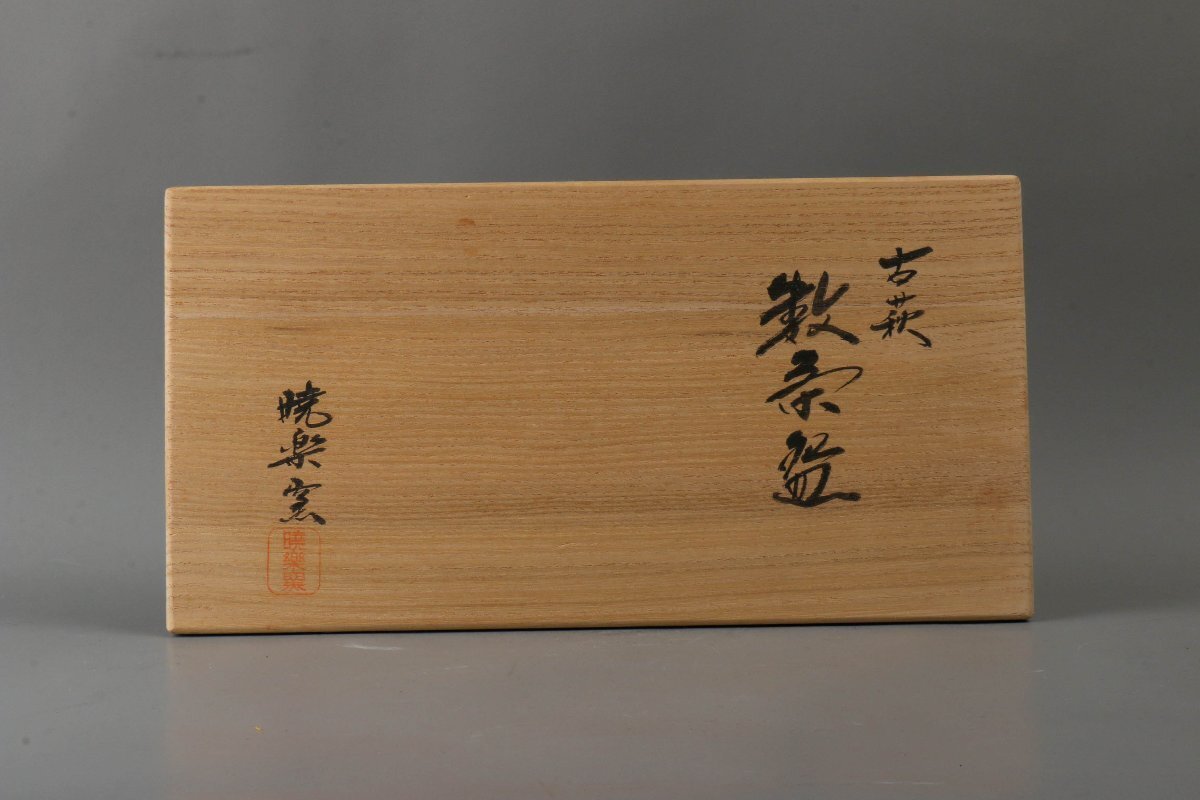 古萩
数茶盌
暁楽窯
暁樂窯